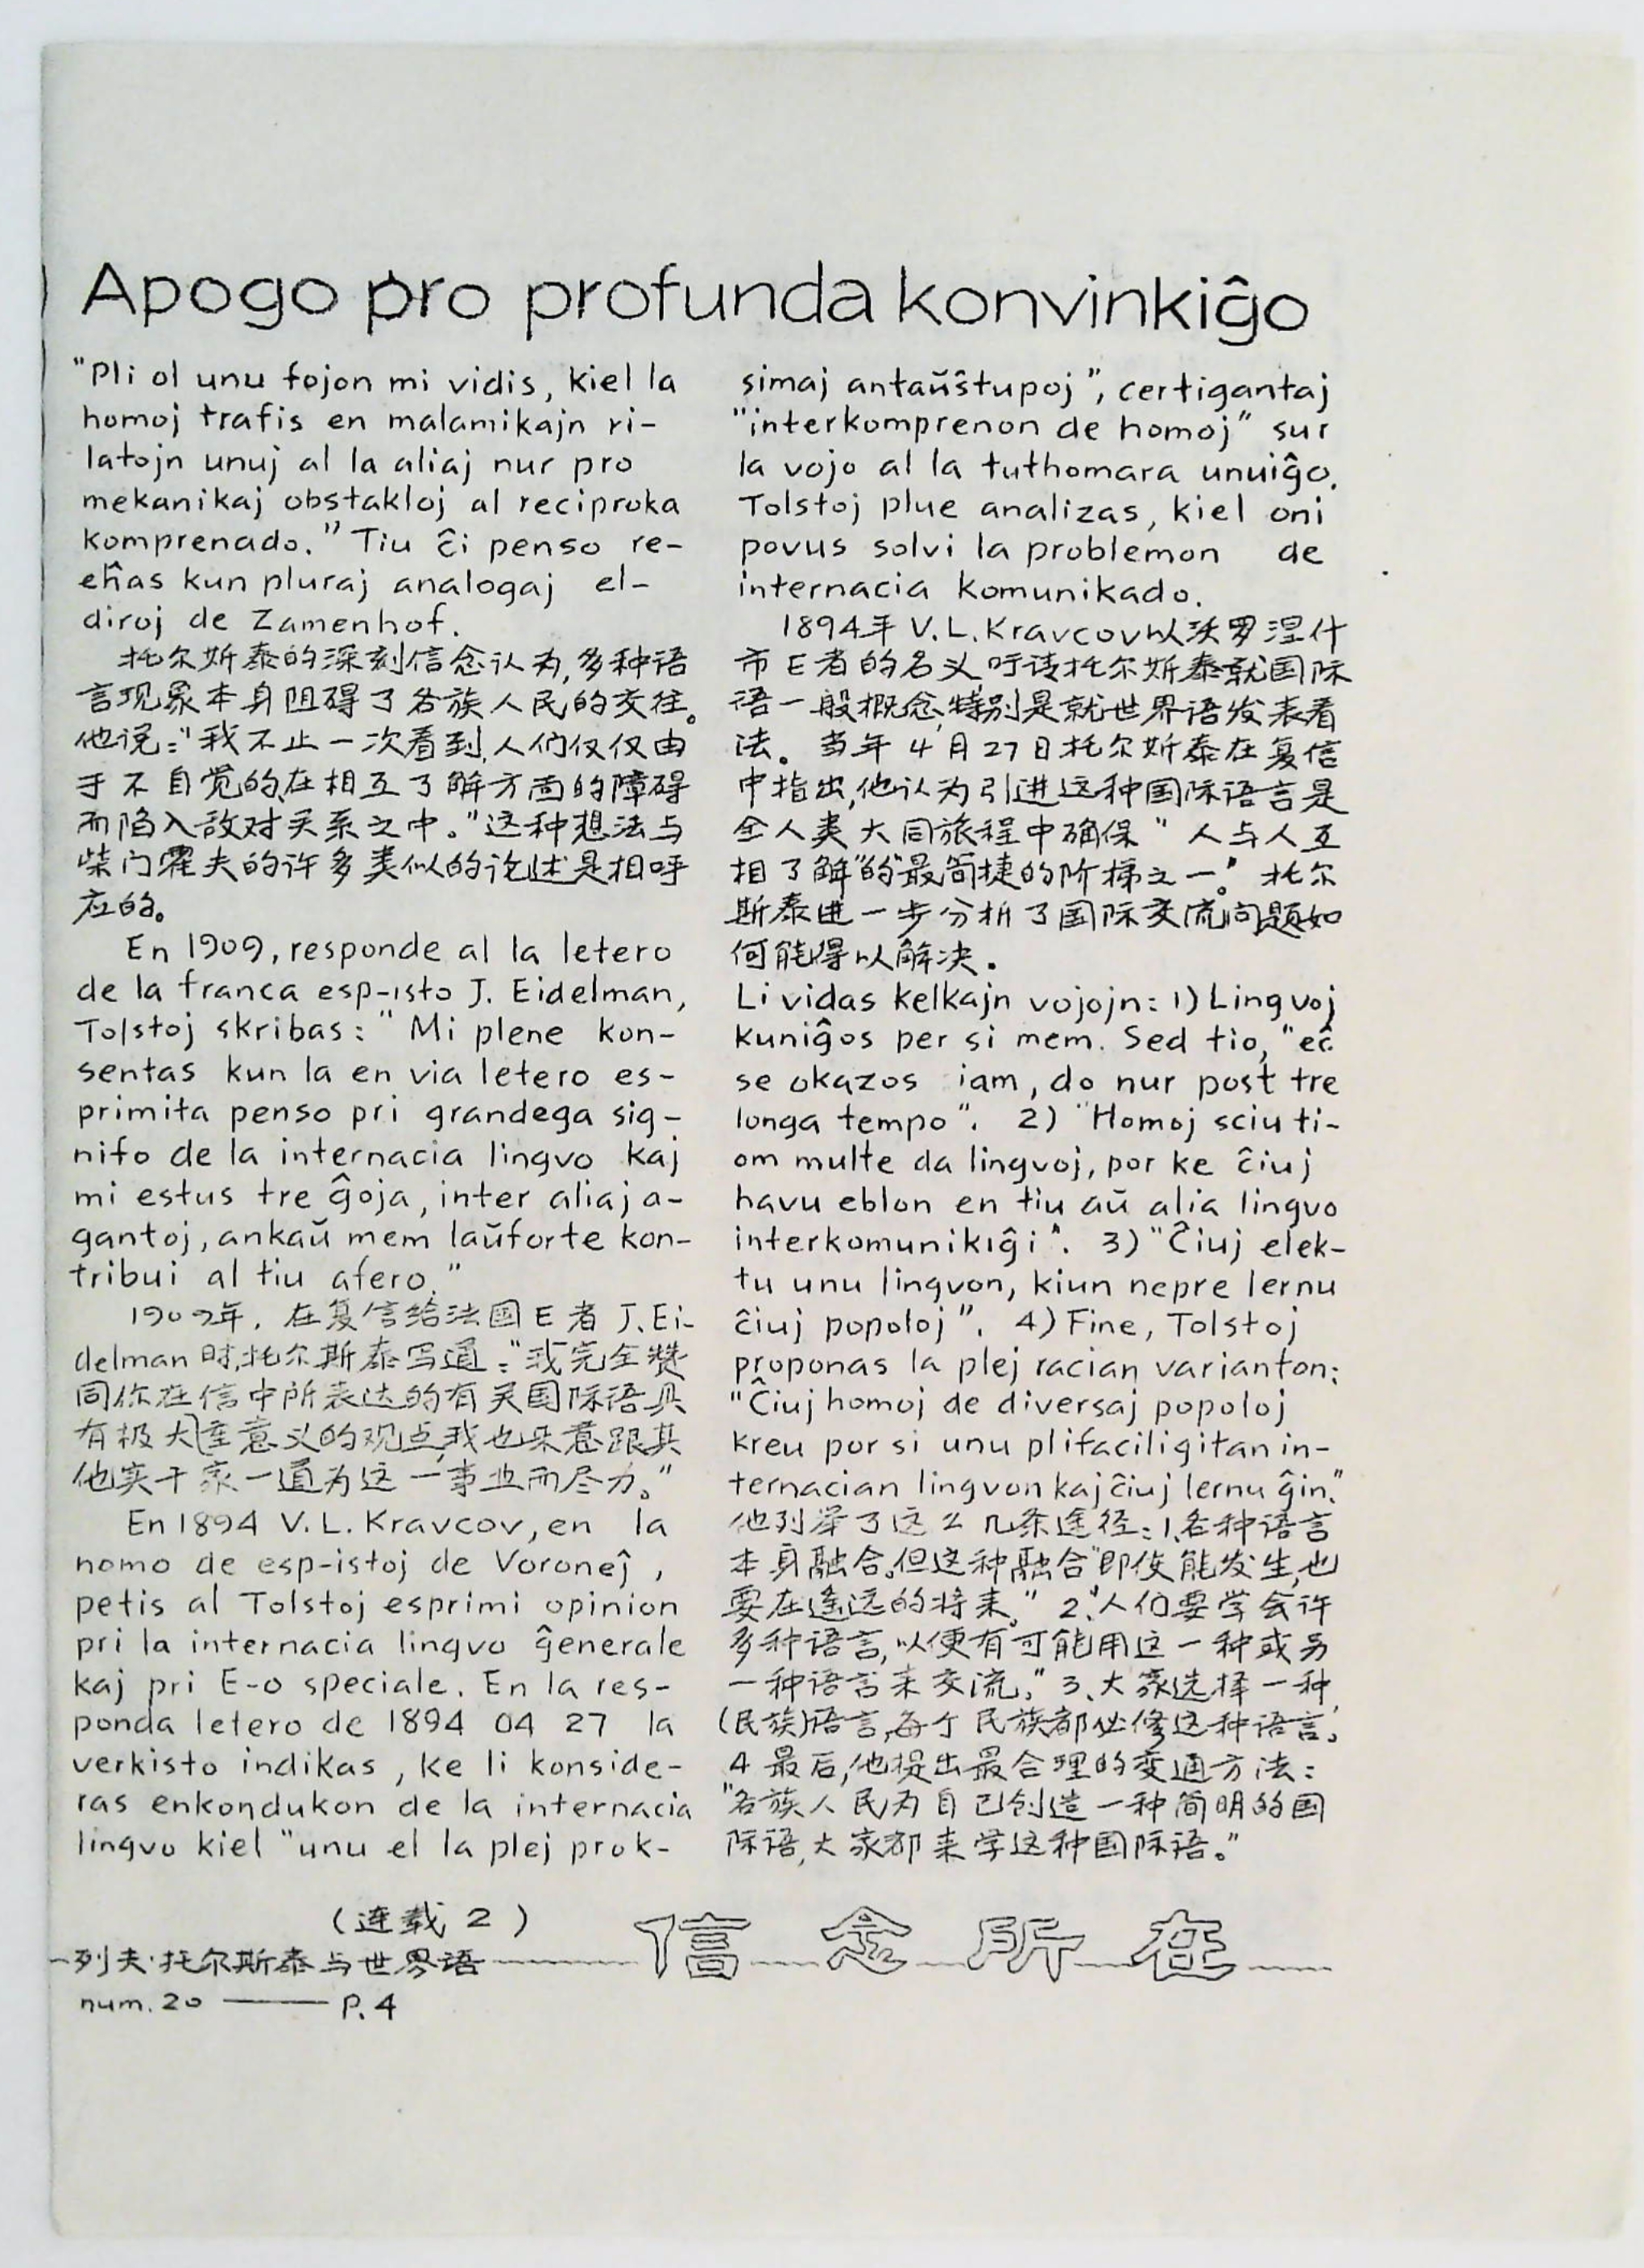 Apogo pro profunda konvinkiĝo
"Pli ol unu fojon mi vidis, kiel la
homoj trafis en malamikajn ri-
latojn unuj al la aliaj nur pro
mekanikaj obstakloj al reciproka
komprenado." Tiu ĉi penso re-
eĥas kun pluraj analogaj el-
diroj de Zamenhof.
托尔斯泰的深刻信念认为,多种语
言现象本身阻碍了各族人民的交往。
他说:"我不止一次看到,人们仅仅由
于不自觉的、在相互了解方面的障碍
而陷入敌对关系之中。"这种想法与
柴门霍夫的许多类似的论述是相呼
应的。
En 1909, responde al la letero
de la franca esp-isto J. Eidelman,
Tolstoj skribas: "Mi plene kon-
sentas kun la en via letero es-
primita penso pri grandega sig-
nifo de la internacia lingvo kaj
mi estus tre ĝoja, inter aliaj a-
gantoj, ankaŭ mem laŭforte kon-
tribui al tiu afero."
1909年, 在复信给法国E者 J. Ei-
delman 时,托尔斯泰写道:"我完全赞
同你在信中所表达的有关国际语具
有极大重意义的观点,我也乐意跟其
他实干家一道为这一事业而尽力。"
En 1894 V. L. Kravcov, en la
nomo de esp-istoj de Voroneĵ,
petis al Tolstoj esprimi opinion
pri la internacia lingvo ĝenerale
kaj pri E-o speciale. En la res-
ponda letero de 1894 04 27 la
verkisto indikas, ke li konside-
ras enkondukon de la internacia
lingvo kiel "unu el la plej prok-
simaj antaŭŝtupoj", certigantaj
"interkomprenon de homoj" sur
la vojo al la tuthomara unuiĝo.
Tolstoj plue analizas, kiel oni
povus solvi la problemon de
internacia komunikado.
1894年 V. L. Kravcov以沃罗涅什
市E者的名义,吁请托尔斯泰就国际
语一般概念,特别是就世界语发表看
法。当年4月27日托尔斯泰在复信
中指出,他认为引进这种国际语言是
全人类大同旅程中确保"人与人互
相了解"的"最简捷的阶梯之一"。托尔
斯泰进一步分析了国际交流问题如
何能得以解决.
Li vidas kelkajn vojojn: 1) Lingvoj
kuniĝos per si mem. Sed tio, "eĉ
se okazos iam, do nur post tre
longa tempo". 2) "Homoj sciu ti-
om multe da lingvoj, por ke ĉiuj
havu eblon en tiu aŭ alia lingvo
interkomunikiĝi". 3) "Ĉiuj elek-
tu unu lingvon, kiun nepre lernu
ĉiuj popoloj". 4) Fine, Tolstoj
proponas la plej racian varianton:
"Ĉiuj homoj de diversaj popoloj
kreu por si unu plifaciligitan in-
ternacian lingvon kaj ĉiuj lernu ĝin."
他列举了这么几条途径:1、各种语言
本身融合。但这种融合"即使能发生,也
要在遥远的将来。" 2、"人们要学会许
多种语言,以便有可能用这一种或另
一种语言来交流。" 3、大家选择一种
(民族)语言,每个民族都必修这种语言。
4 最后,他提出最合理的变通方法:
"各族人民为自己创造一种简明的国
际语,大家都来学这种国际语。"
(连载 2)
列夫·托尔斯泰与世界语
信念所在
num. 20 —— P. 4